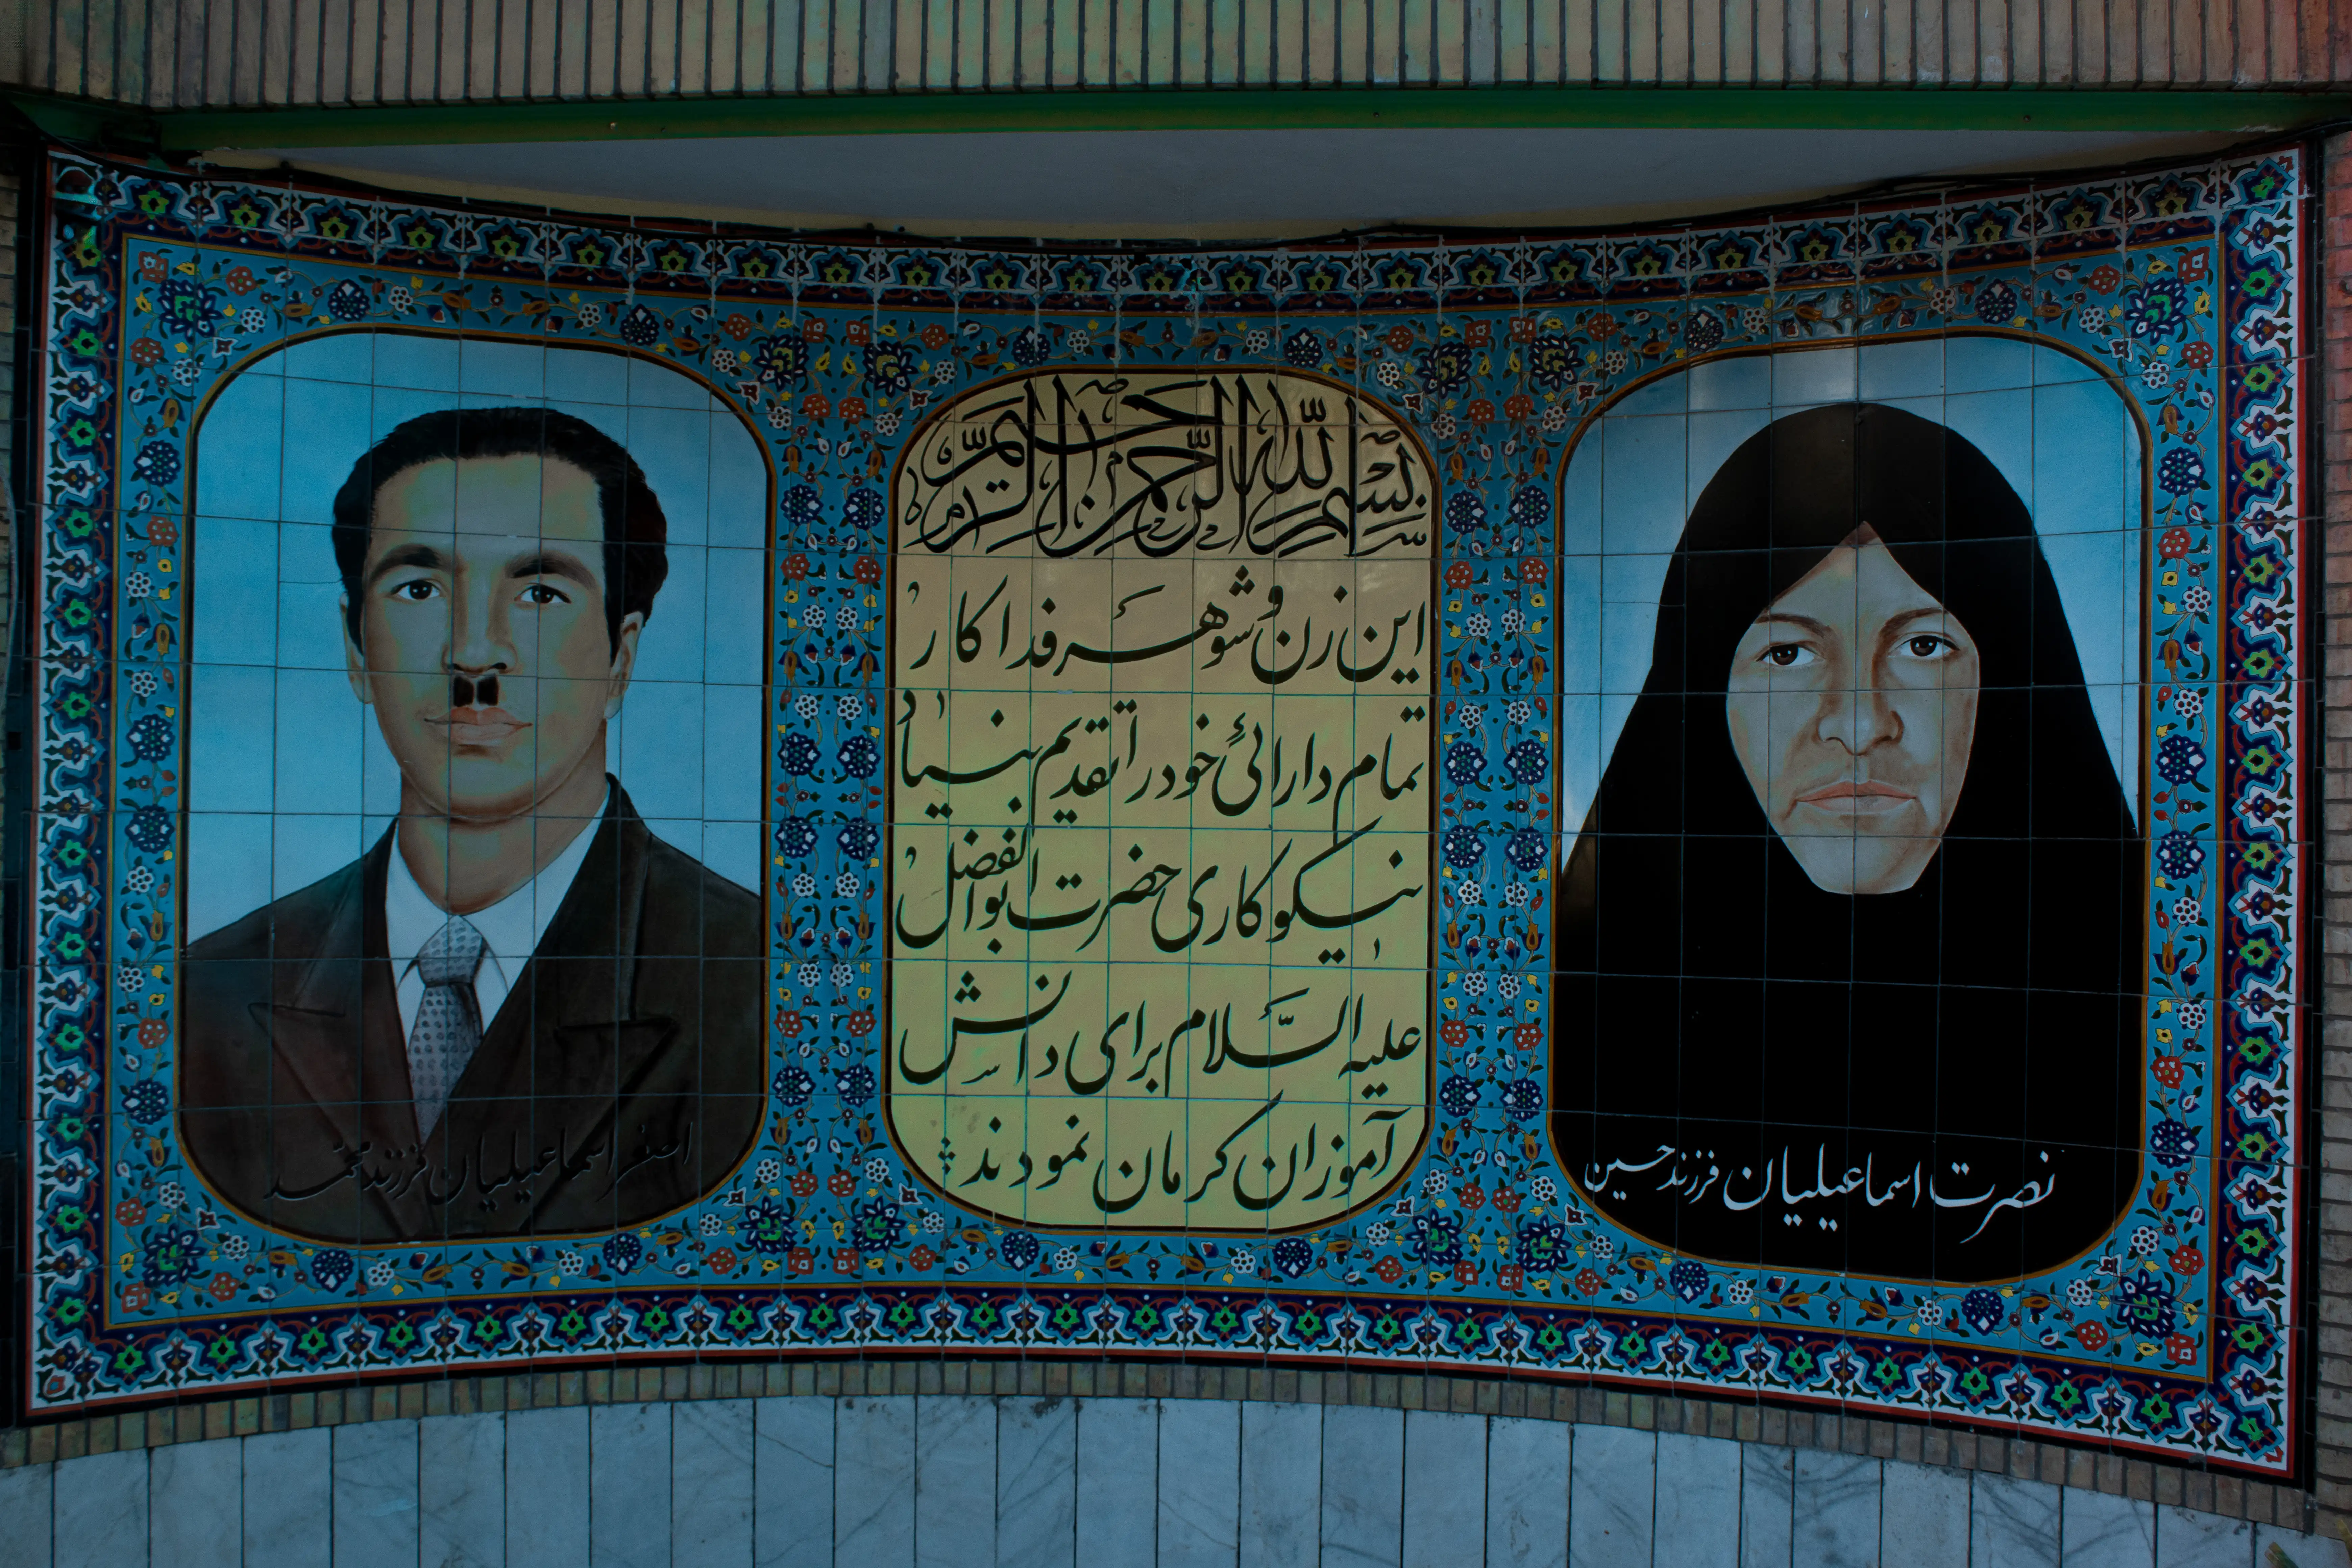 بسم الله الرحمن الرحیم
این زن و شوهر فداکار
تمام دارائی خود را تقدیم بنیاد
نیکوکاری حضرت ابوالفضل
علیه السّلام برای دانش
آموزان کرمان نمودند
اصغر اسماعیلیان فرزند محمد
نصرت اسماعیلیان فرزند حسین